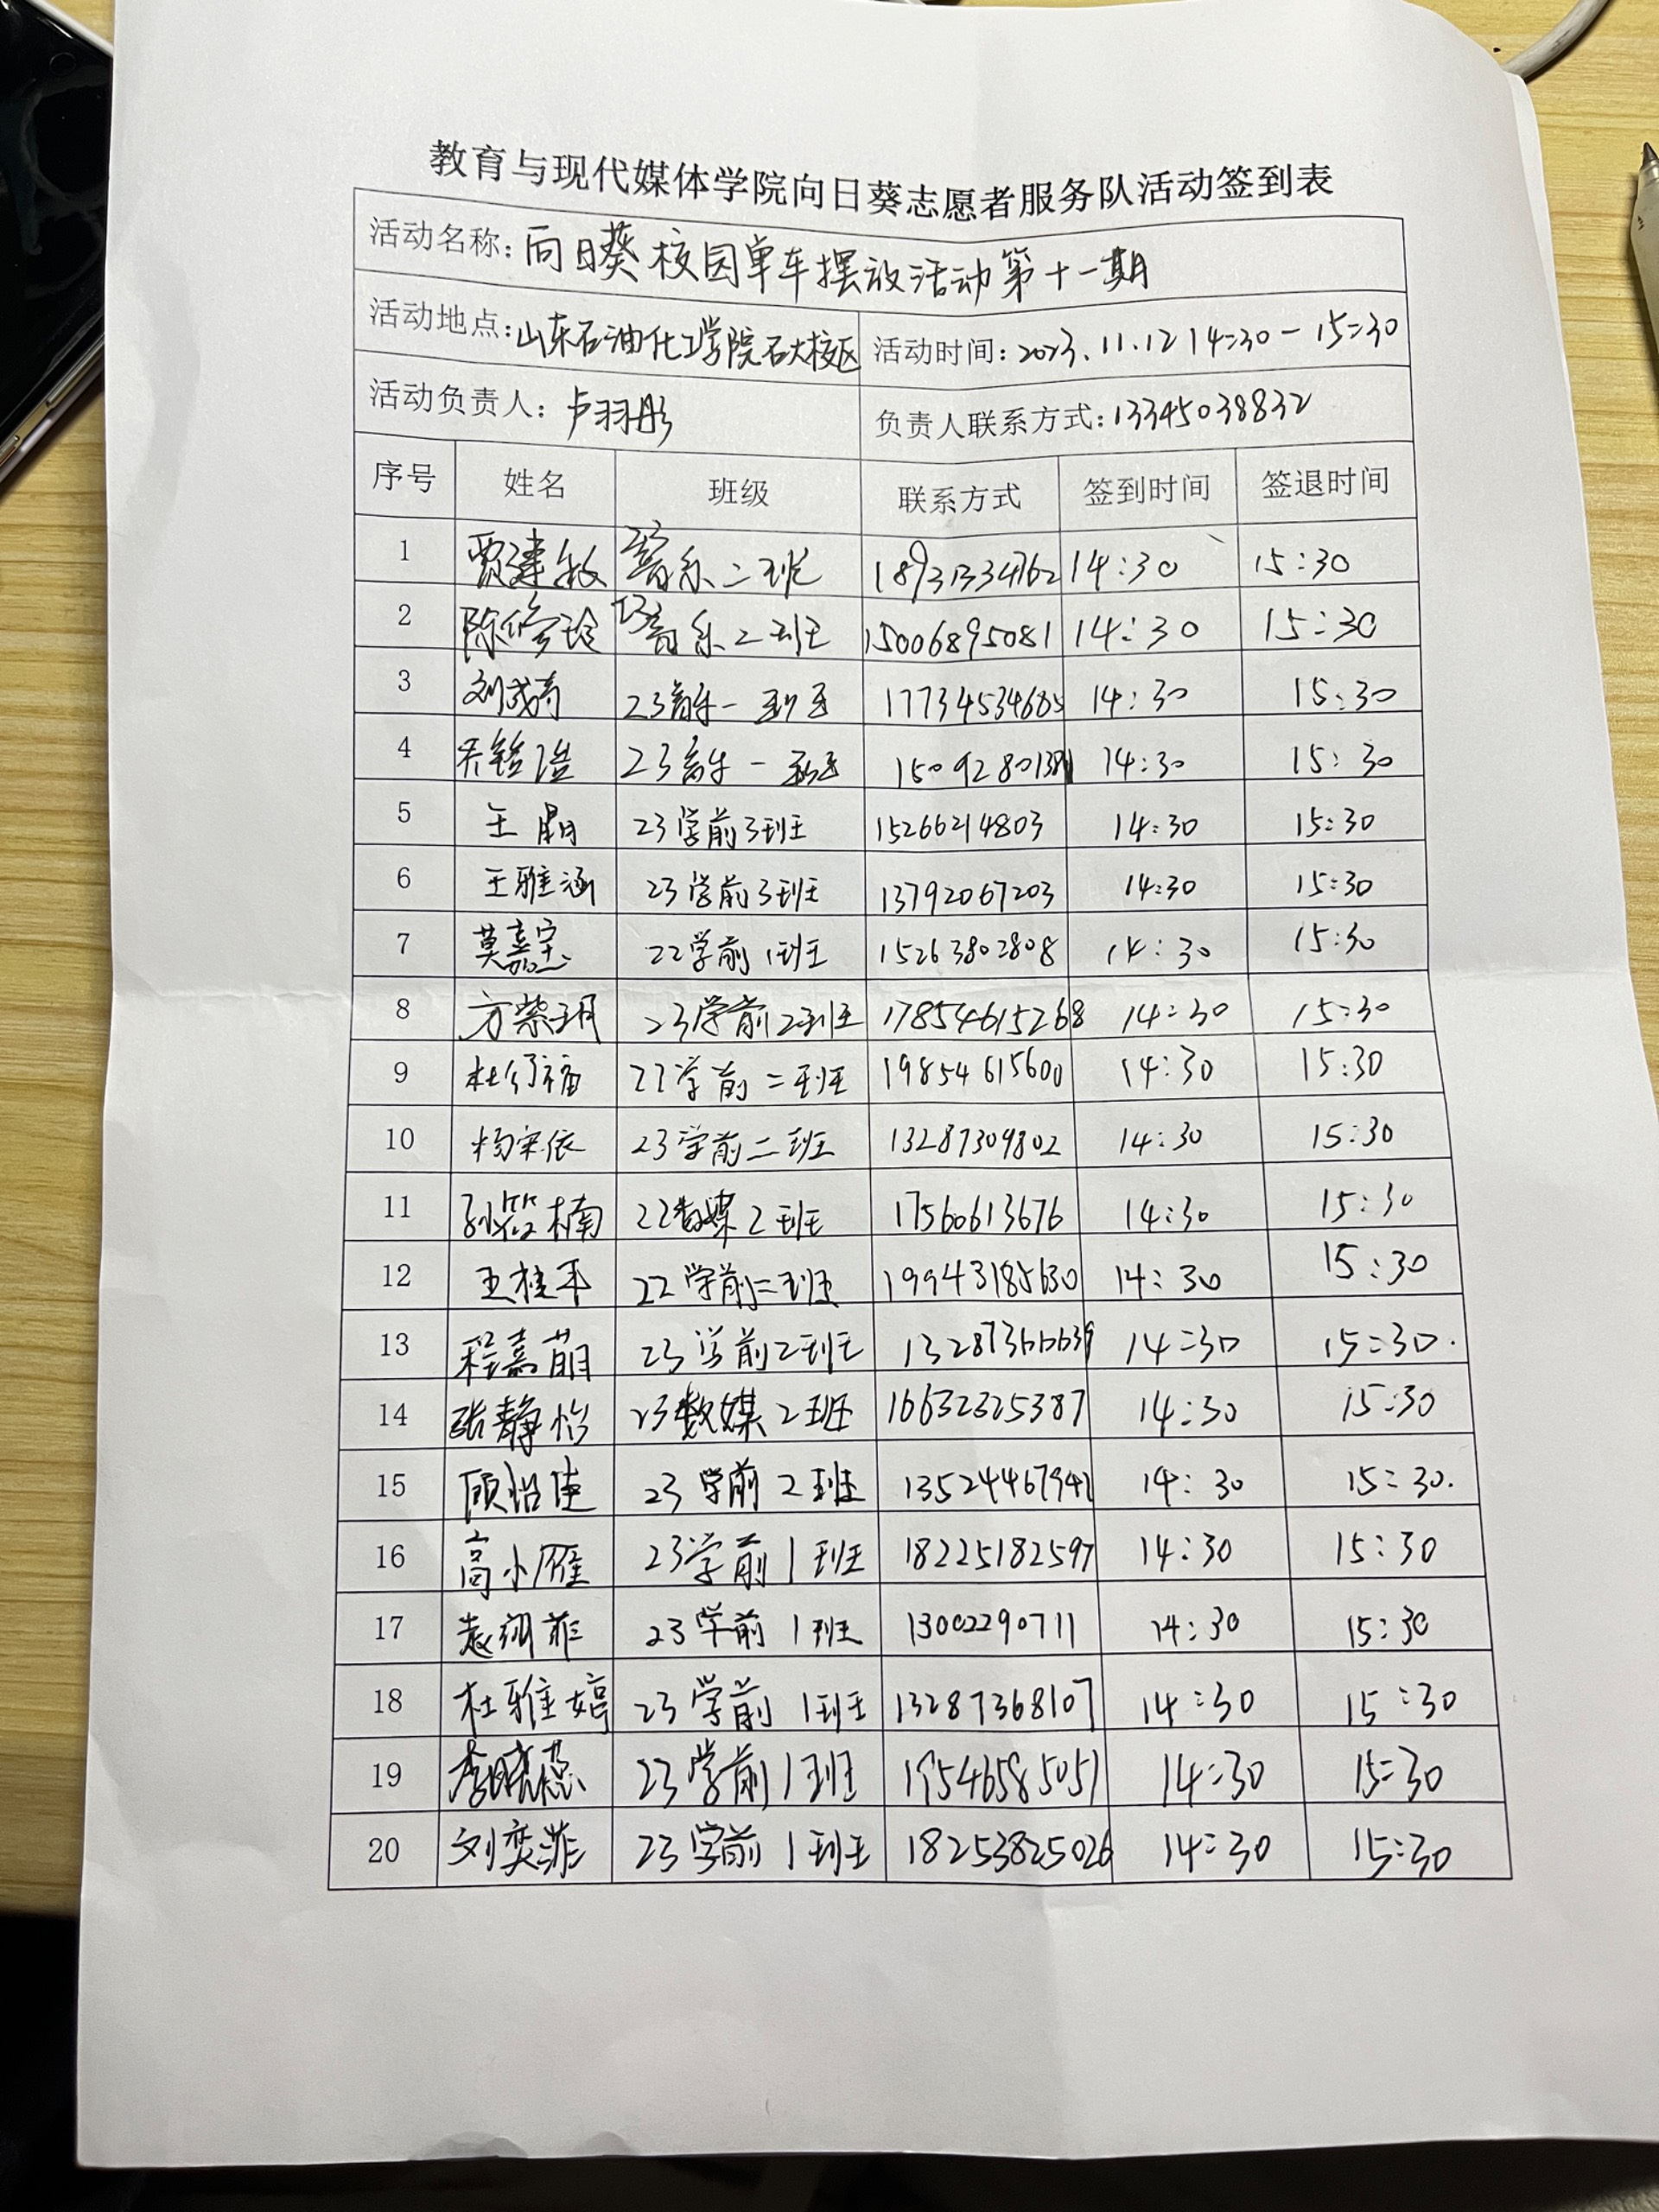 教育与现代媒体学院向日葵志愿者服务队活动签到表
活动名称:向日葵校园单车摆放活动第十一期
活动地点:山东石油化工学院石大校区 活动时间:2023.11.12 14:30-15:30
活动负责人:卢羽彤 负责人联系方式:13345038832
序号 姓名 班级 联系方式 签到时间 签退时间
1 贾建敏 23音乐二班 14:30 15:30
2 陈修玲 23音乐2班 15006895081 14:30 15:30
3 刘成奇 23音乐一班 17734534685 14:30 15:30
4 23音乐一班 14:30 15:30
5 王晶 23学前3班 15266214803 14:30 15:30
6 王雅涵 23学前3班 13792067203 14:30 15:30
7 莫嘉宝 22学前1班 15263802808 14:30 15:30
8 方紫玥 23学前2班 17854615268 14:30 15:30
9 22学前二班 19854615600 14:30 15:30
10 杨宋依 23学前二班 13287309802 14:30 15:30
11 孙筱楠 22数媒2班 17560613676 14:30 15:30
12 王桂平 22学前二班 19943185630 14:30 15:30
13 程嘉萌 23学前2班 14:30 15:30.
14 张静怡 23数媒2班 16632325387 14:30 15:30
15 顾怡佳 23学前2班 13524467941 14:30 15:30.
16 高小雁 23学前1班 18225182597 14:30 15:30
17 袁翊菲 23学前1班 13002290711 14:30 15:30
18 杜雅婷 23学前1班 13287368107 14:30 15:30
19 李晓蕊 23学前1班 14:30 15:30
20 刘奕菲 23学前1班 18253825026 14:30 15:30